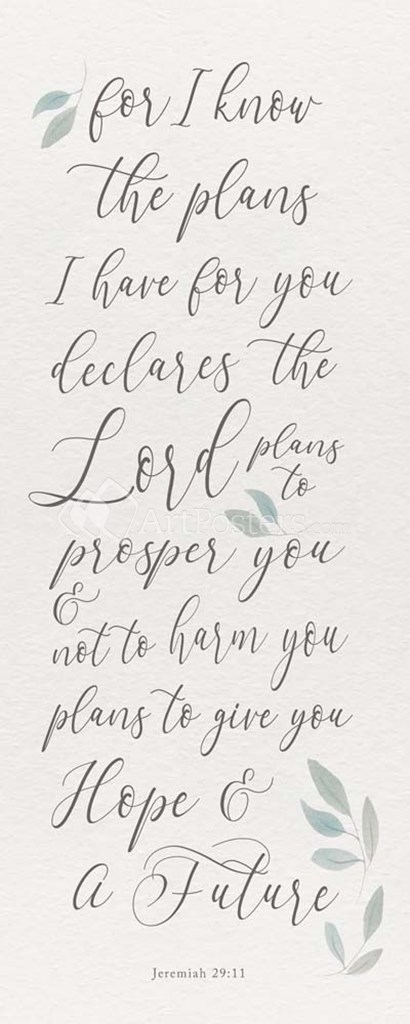 for I know
the plans
I have for you
declares the
Lord plans
to
prosper you
&
not to harm you
plans to give you
Hope &
A Future
Jeremiah 29:11
ArtPosters